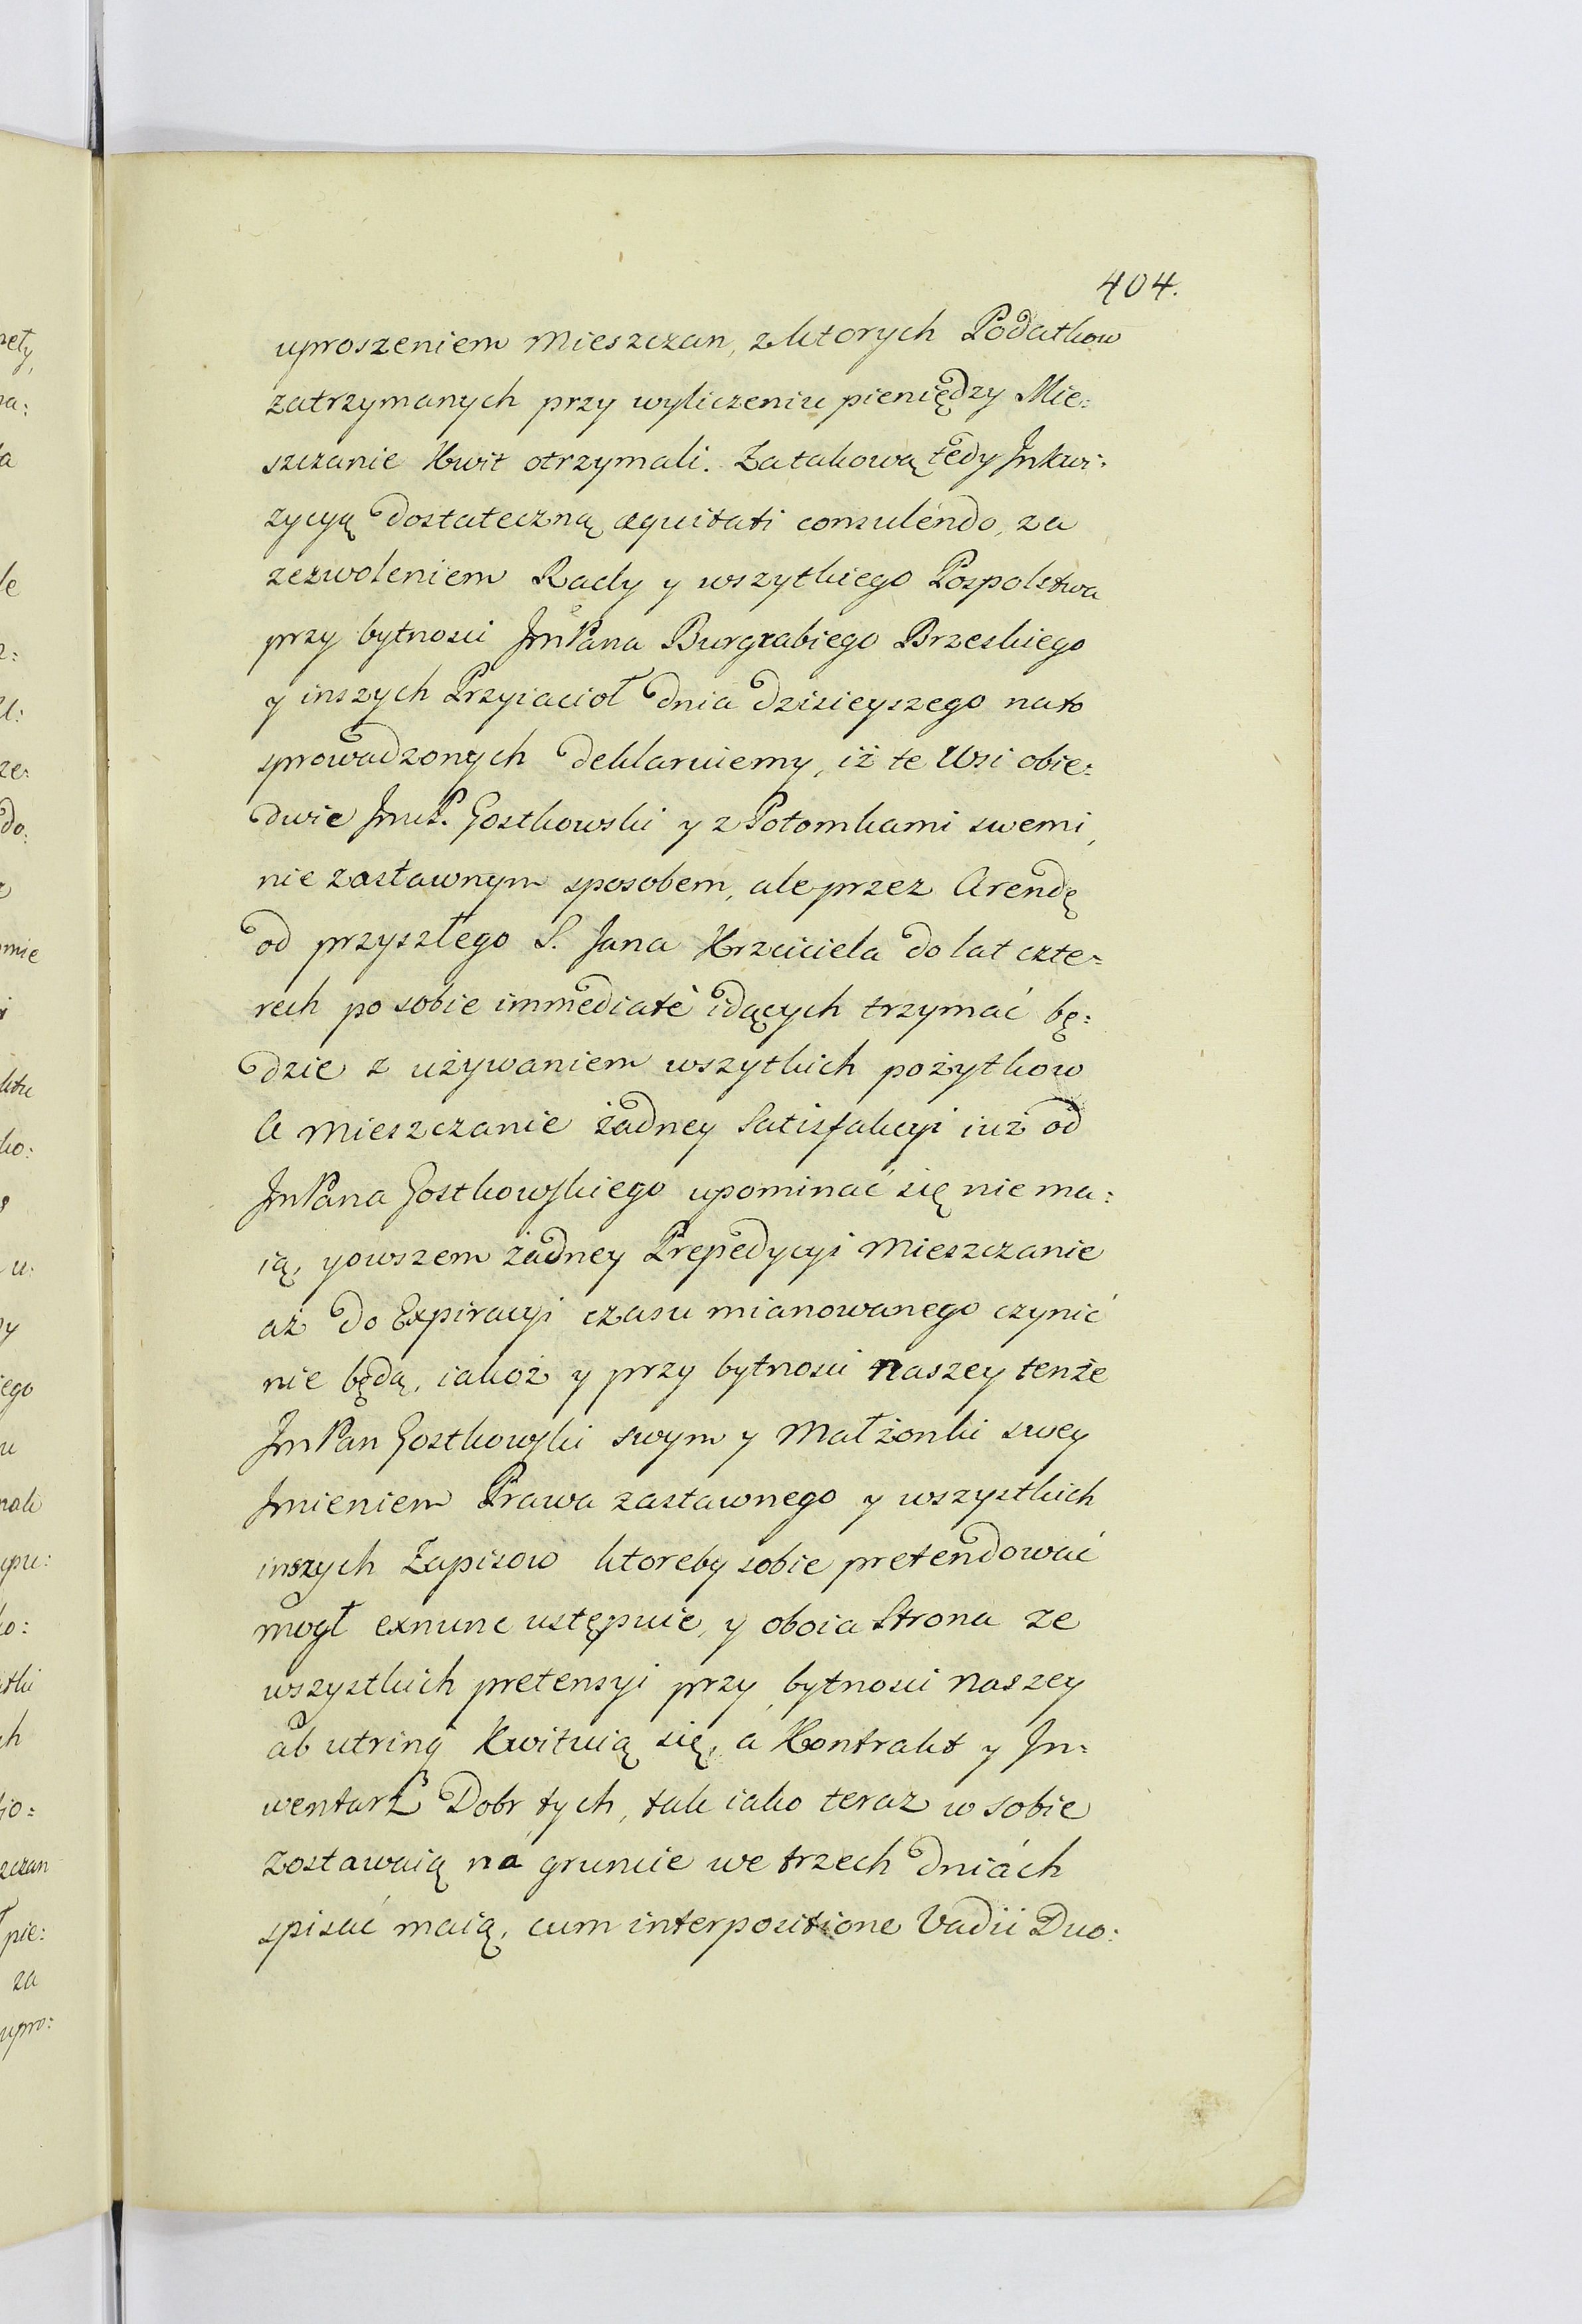 404.
uproszeniem Mieszczan, z ktorych Podatkow
zatrzymanych przy wyliczeniu pieniędzy Mie:
szczanie Kwit otrzymali. Za takową tedy Inkwi:
zycyą dostateczną æquitati consulendo, za
zezwoleniem Rady y wszytkiego Pospolstwa
przy bytnosci JmPana Burgrabiego Brzeskiego
y inszych Przyiacioł dnia dzisieyszego na to
sprowadzonych deklaruiemy, iż te Wsi obie:
dwie JmP. Gostkowski y z Potomkami swemi,
nie zastawnym sposobem, ale przez Arendę
od przyszłego S. Jana Krzciciela do lat czte:
rech po sobie immediatè idących trzymać bę:
dzie z używaniem wszytkich pożytkow
A Mieszczanie żadney Satisfakcyi iuż od
JmPana Gostkowskiego upominać się nie ma:
ią, y owszem żadney Prepedycyi Mieszczanie
aż do Expiracyi czasu mianowanego czynić
nie będą, iakoż y przy bytnosci naszey tenże
JmPan Gostkowski swym y Małżonki swey
Imieniem Prawa zastawnego y wszystkich
inszych Zapisow ktoreby sobie pretendować
mogł exnunc ustępuie, y oboia Strona ze
wszystkich pretensyi przy bytnosci naszey
ab utrinq Kwituią się, á Kontrakt y In:
wentarz Dobr tych, tak iako teraz w sobie
zostawaią ná gruncie we trzech dniách
spisać maią, cum interpositione Vadii Duo: